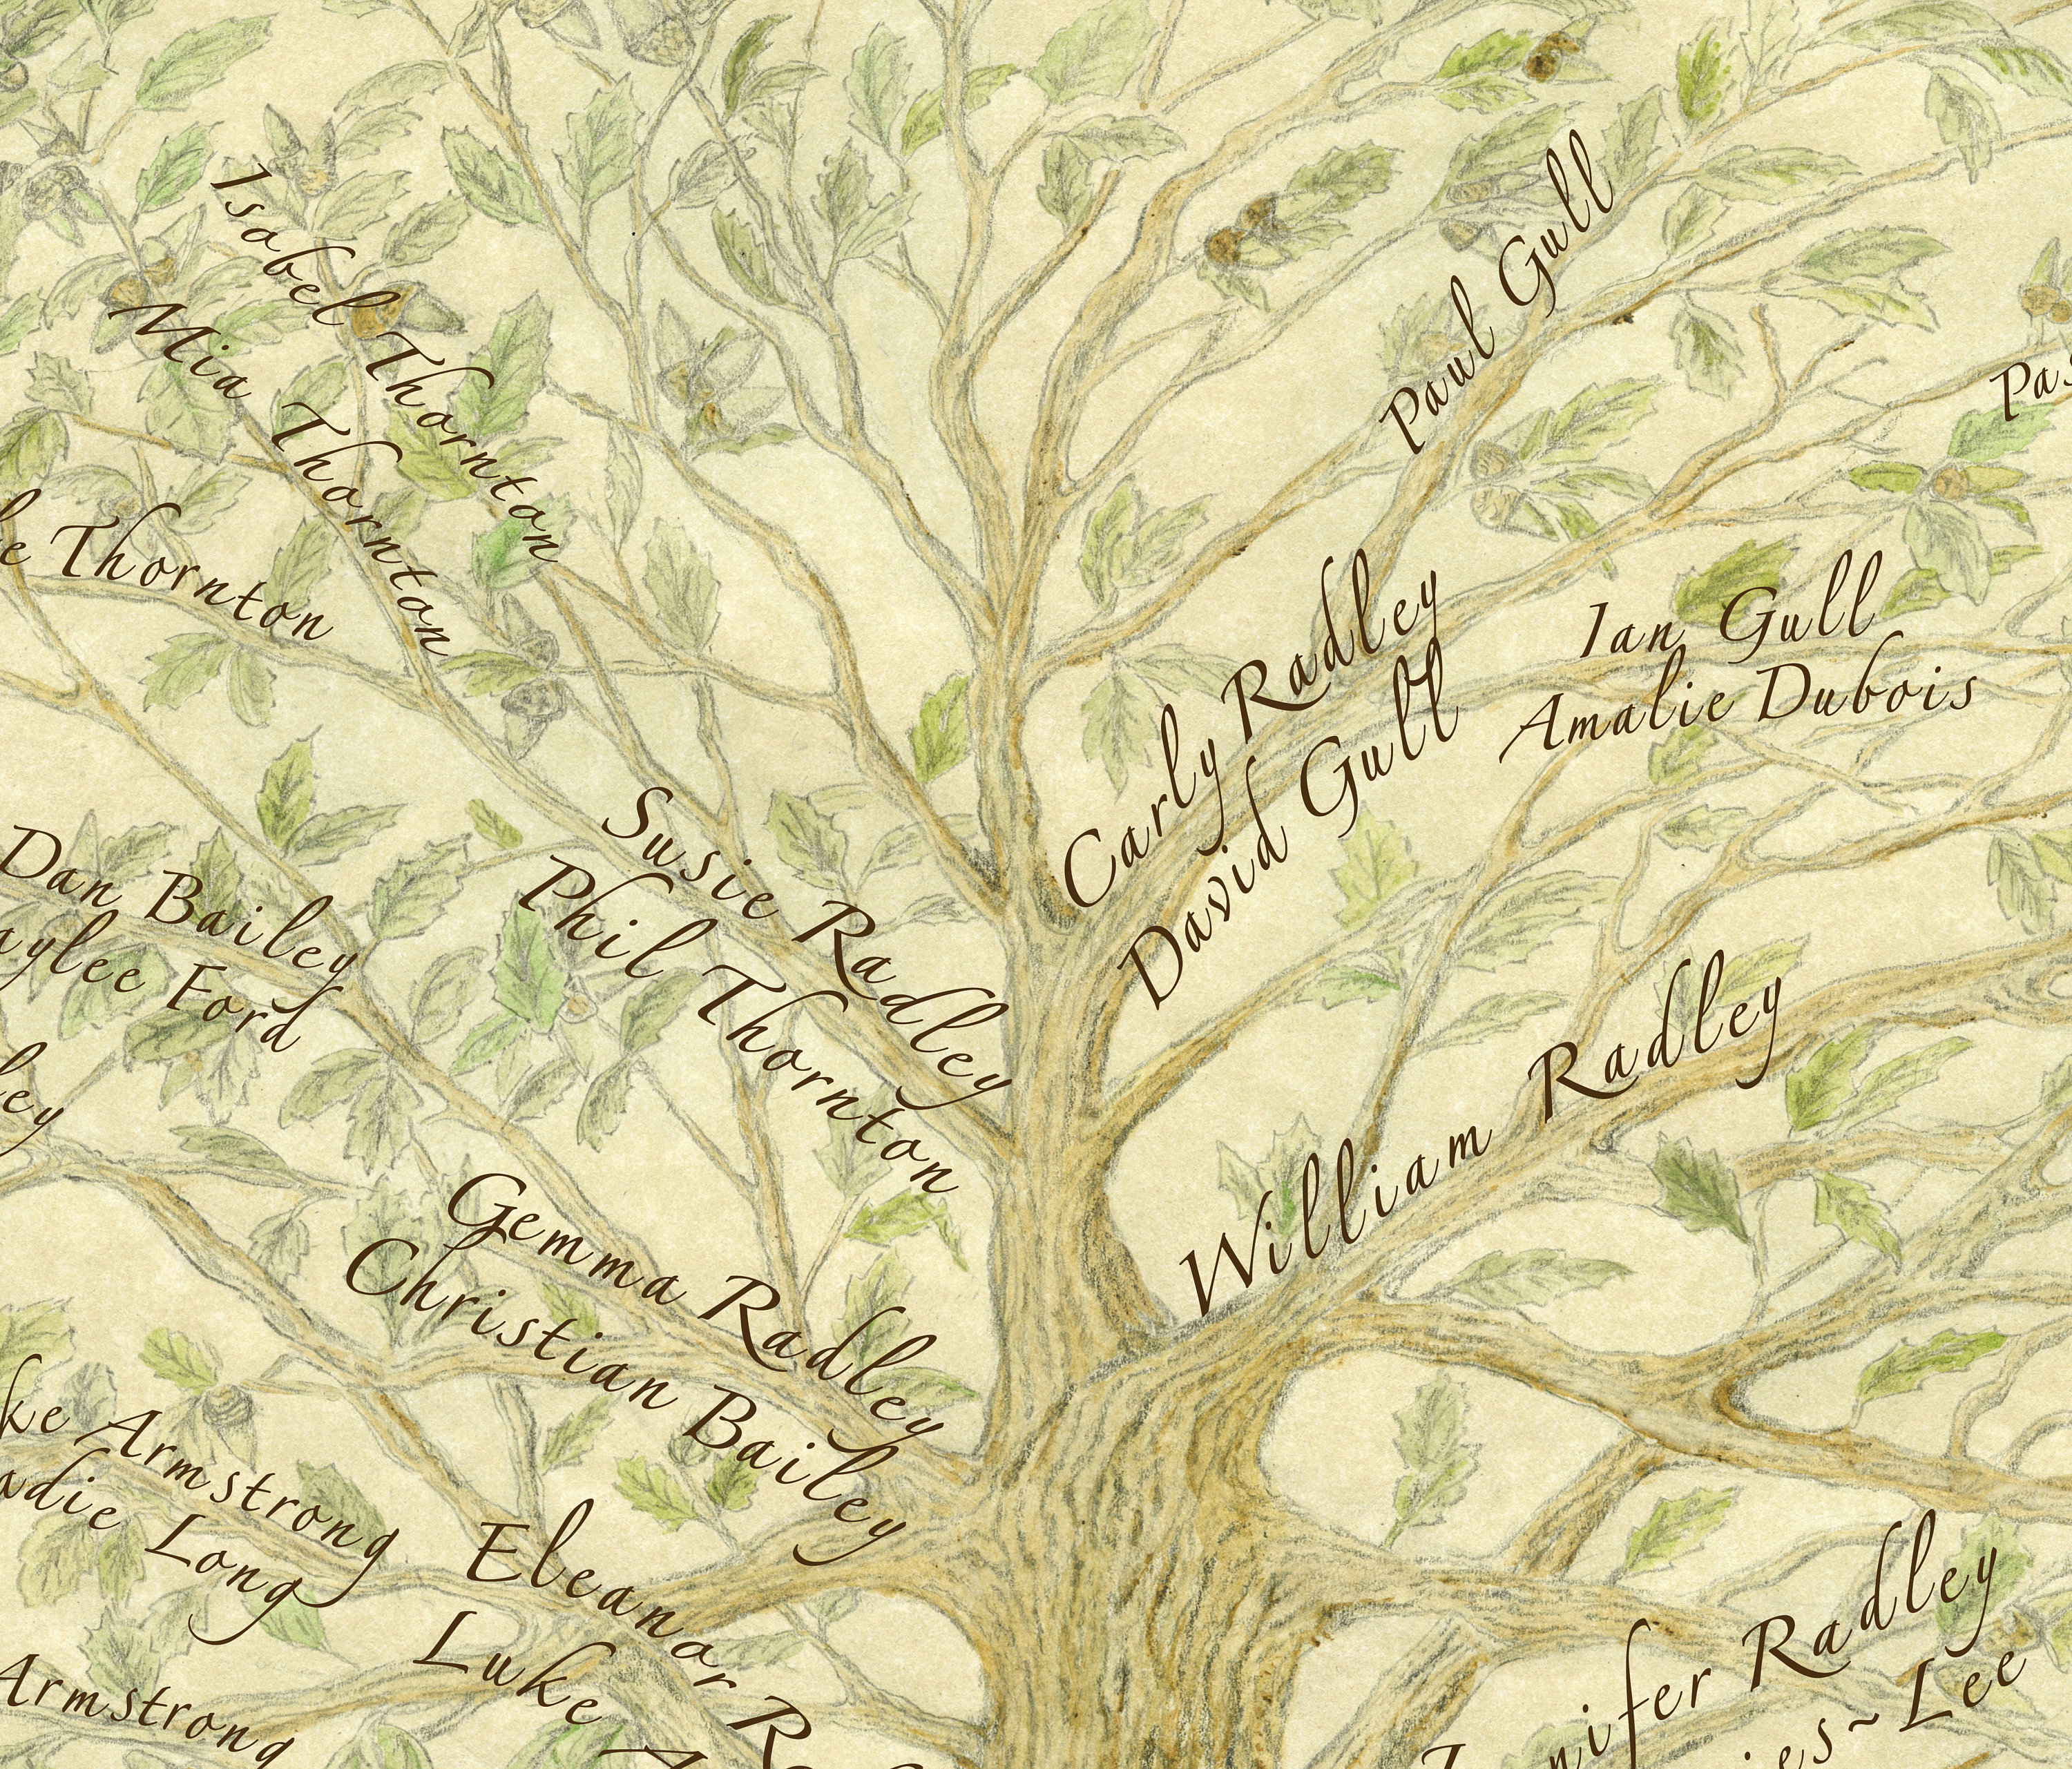 Isobel Thornton
Mia Thornton
Thornton
Paul Gull
Carly Radley
David Gull
Ian Gull
Amalie Dubois
Susie Radley
Phil Thornton
Dan Bailey
Ford
William Radley
Gemma Radley
Christian Bailey
Armstrong
Long
Eleanor
Luke
Armstrong
Radley
Lee